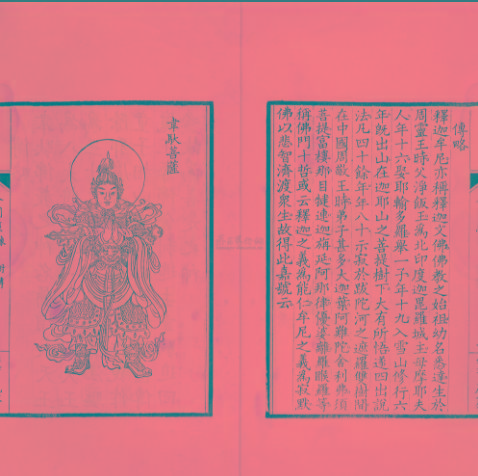 傳略
釋迦牟尼亦稱釋迦文佛佛教之始祖幼名悉達生於
周靈王時父淨飯王為北印度迦毘羅城王母摩耶夫
人年十六娶耶輸多羅舉一子年十九入雪山修行六
年既出山在迦耶山之菩提樹下大有所悟遂四出說
法凡四十餘年年八十示寂於跋陀河之邊羅雙樹間
在中國周敬王時弟子甚多大迦葉阿難陀舍利弗須
菩提富樓那目揵連迦栴延阿那律優婆離羅睺羅等
稱佛門十哲或云釋迦之義為能仁牟尼之義為寂默
佛以悲智濟渡眾生故得此嘉號云
韋馱菩薩